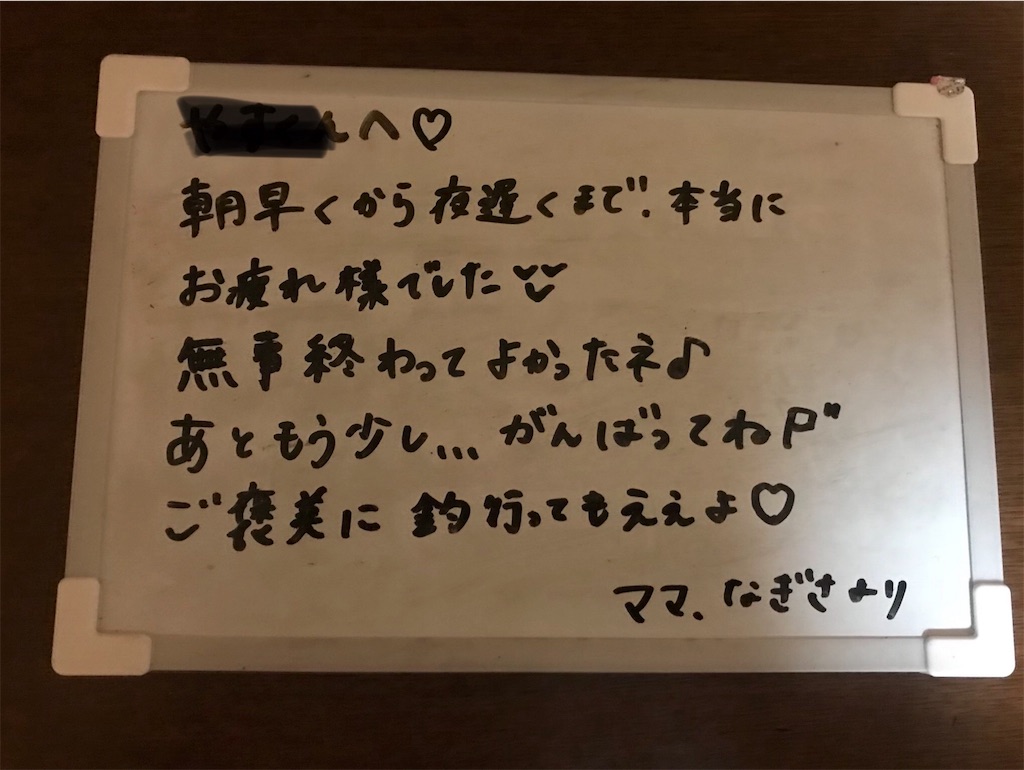 へ♡
朝早くから夜遅くまで、本当に
お疲れ様でした
無事終わってよかったネ♪
あともう少し...がんばってね
ご褒美に釣行ってもええよ♡
ママ、なぎさより